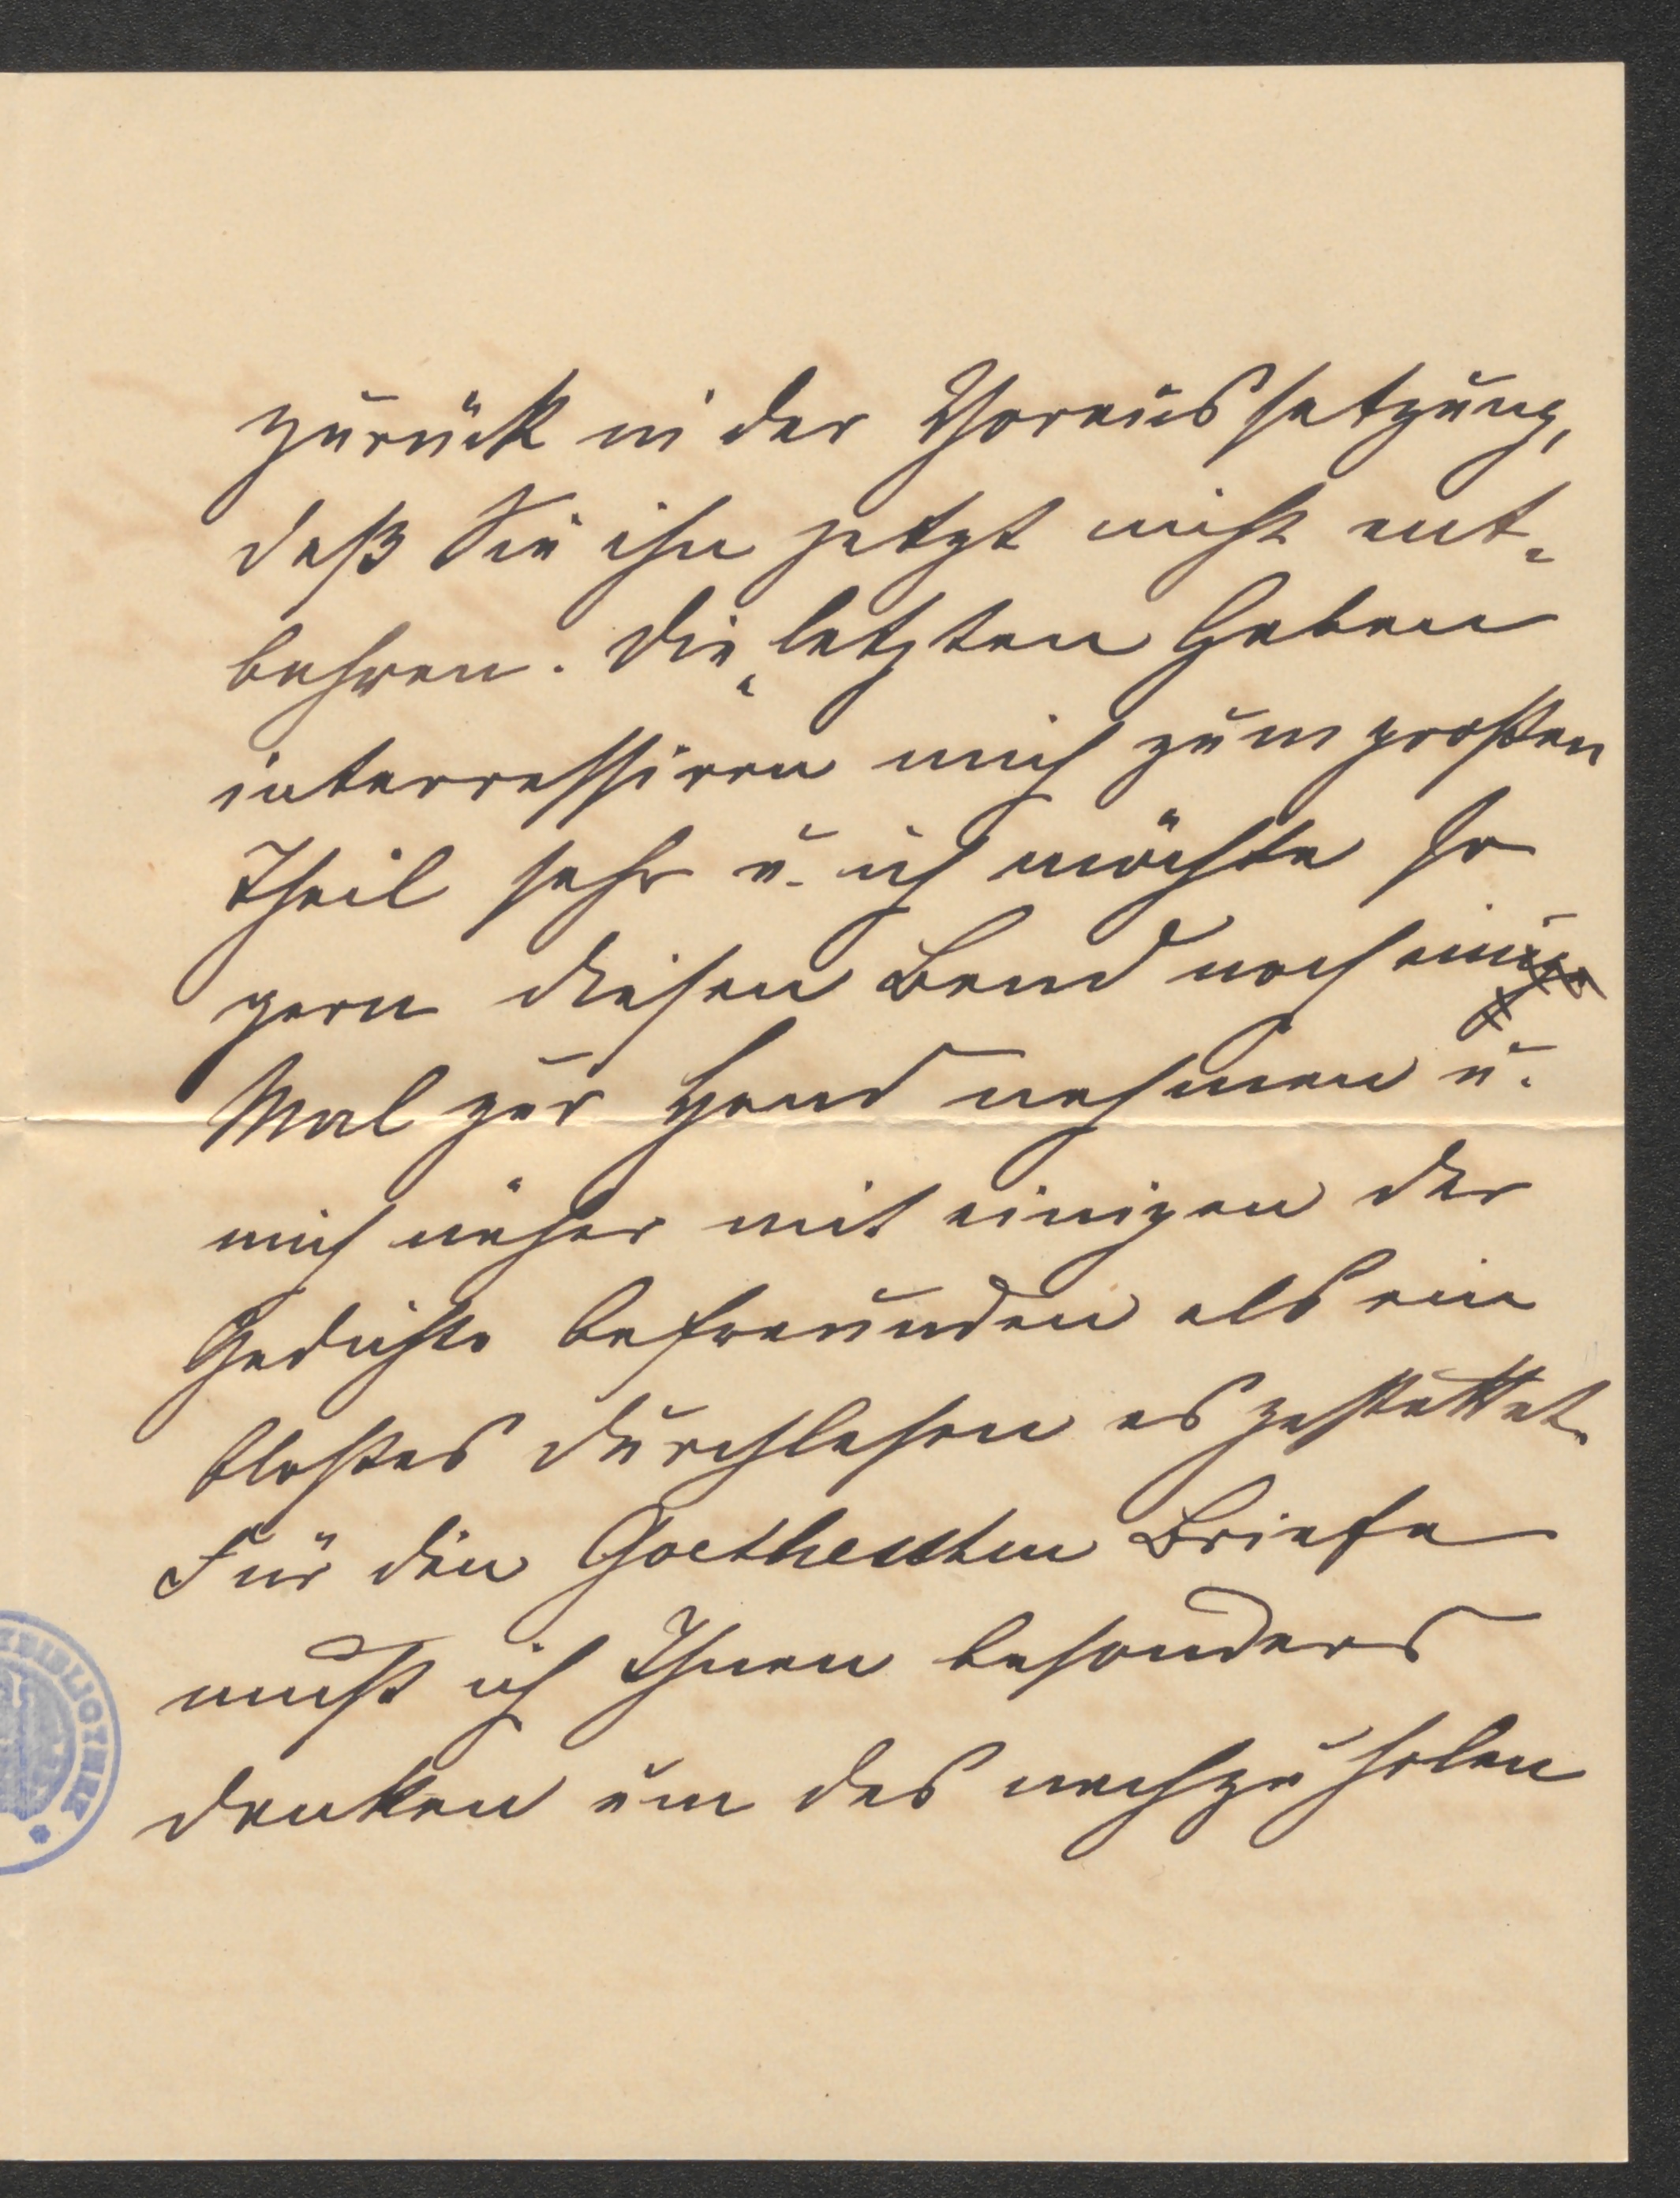 zurück in der Voraussetzung,
daß Sie ihn jetzt nicht ent-
behren. Die „letzten Gaben
interressiren mich zum großen
Theil sehr u. ich möchte so
gern diesen Band noch ein
Mal zur Hand nehmen u.
mich näher mit einigen der
Gedichte befreunden als ein
bloßes Durchlesen es gestattet.
Für den Goetheschen Briefe
muß ich Ihnen besonders
danken um das nachzuholen